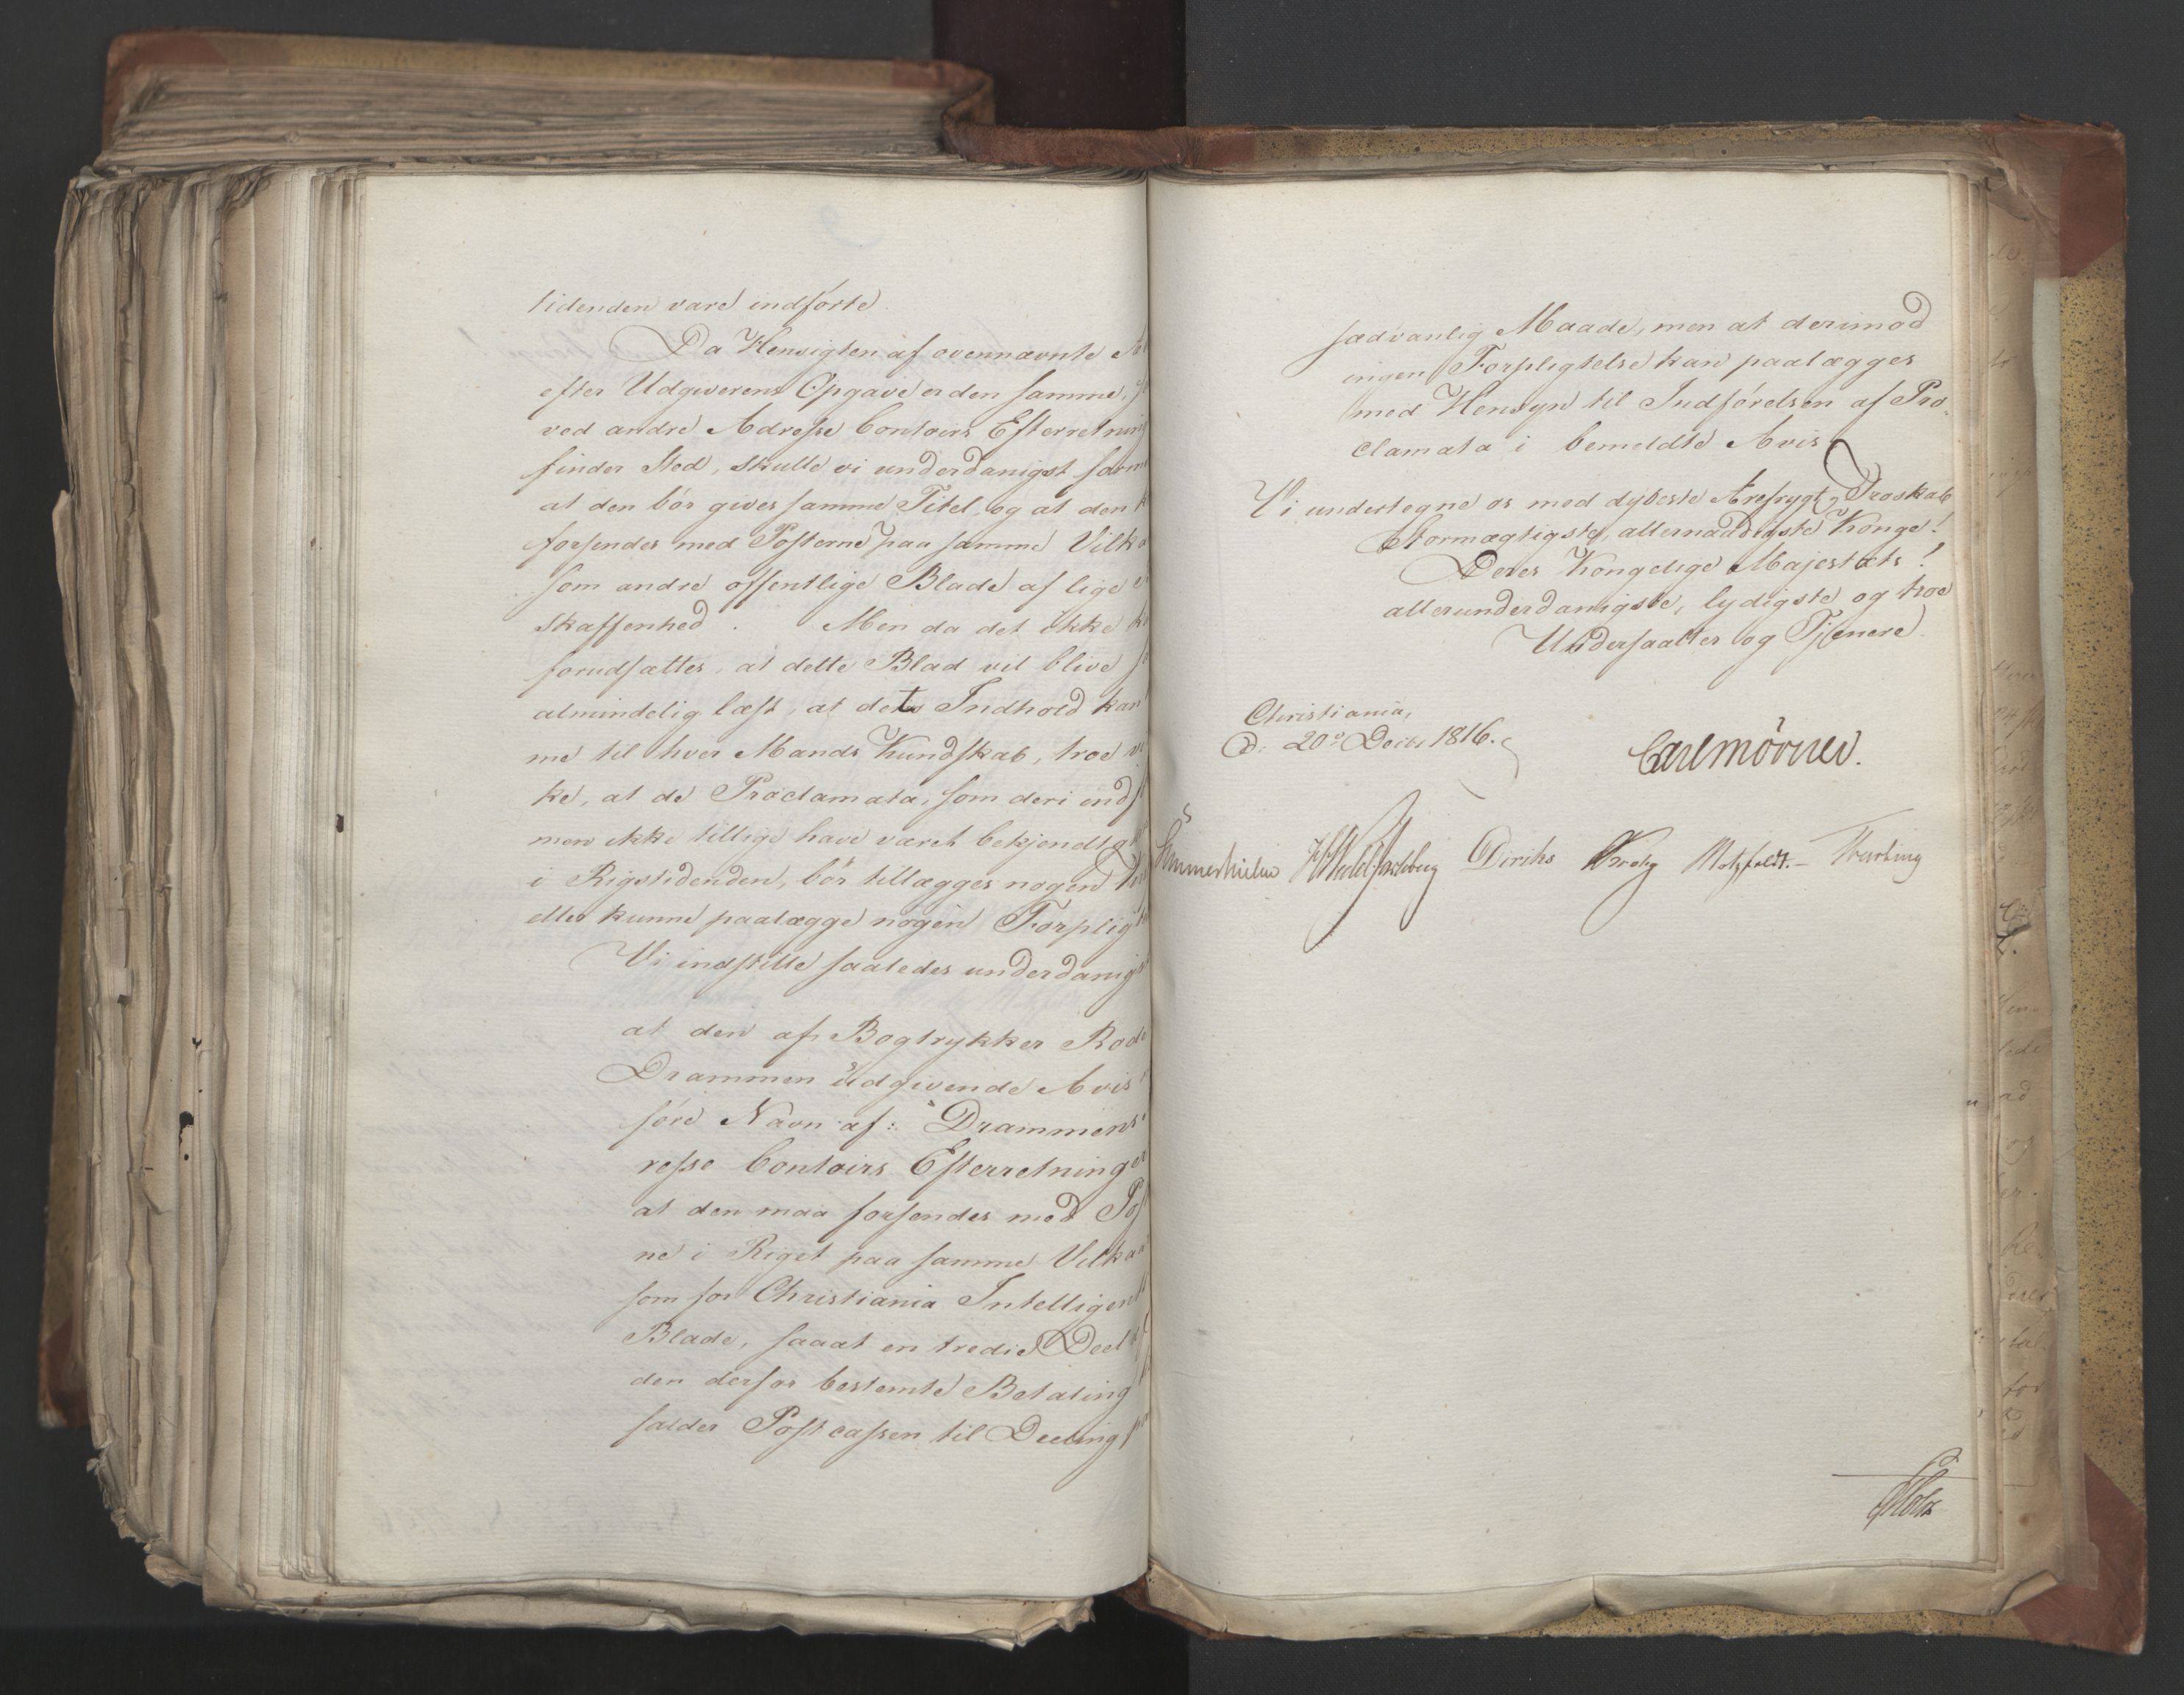 tidenden vare indførte.
Da Hensigten af ovennævnte
efter Udgiverens Opgave er den samme,
ved andre Adresse Contoirs Efterretning
finder Sted, skulle vi underdanigst forme
at den bör gives samme Titel, og at den k
forsendes med Posterne paa samme Vilka
som andre offentlige Blade af lige
skaffenhed. Men da det ikke k
forudsættes, at dette Blad vil blive
almindelig læst, at dets Indhold kan
me til hver Mands Kundskab, troe vi
ke, at de Proclamata, som deri indf
men ikke tillige have været bekjendtg
i Rigstidenden, bör tillægges nogen
eller kunne paalægge nogen Forpligt
Vi indstille saaledes underdanigst
at den af Bogtrykker Rode
Drammen udgivende Avis
före Navn af: "Drammens
resse Contoirs Efterretninger
at den maa forsendes med Pos
ne i Riget paa samme Vilkaa
som for Christiania Intelligents
Blade, saaat en tredie Deel
den derfor bestemte Betaling
falder Postcassen til Deeling
sædvanlig Maade, men at derimod
ingen Forpligtelse kan paalægges
med Hensyn til Indförelsen af Pro-
clamata i bemeldte Avis.
Vi undertegne os med dybeste Ærefrygt og Troskab
Stormægtigste, allernaadigste Konge!
Deres Kongelige Majestæts!
allerunderdanigste, lydigste og troe
Undersaatter og Tjenere.
Christiania,
D. 20de Decbr 1816.
Carl Mörner.
Sommerhielm Diriks Krog Motzfeldt.
Holst